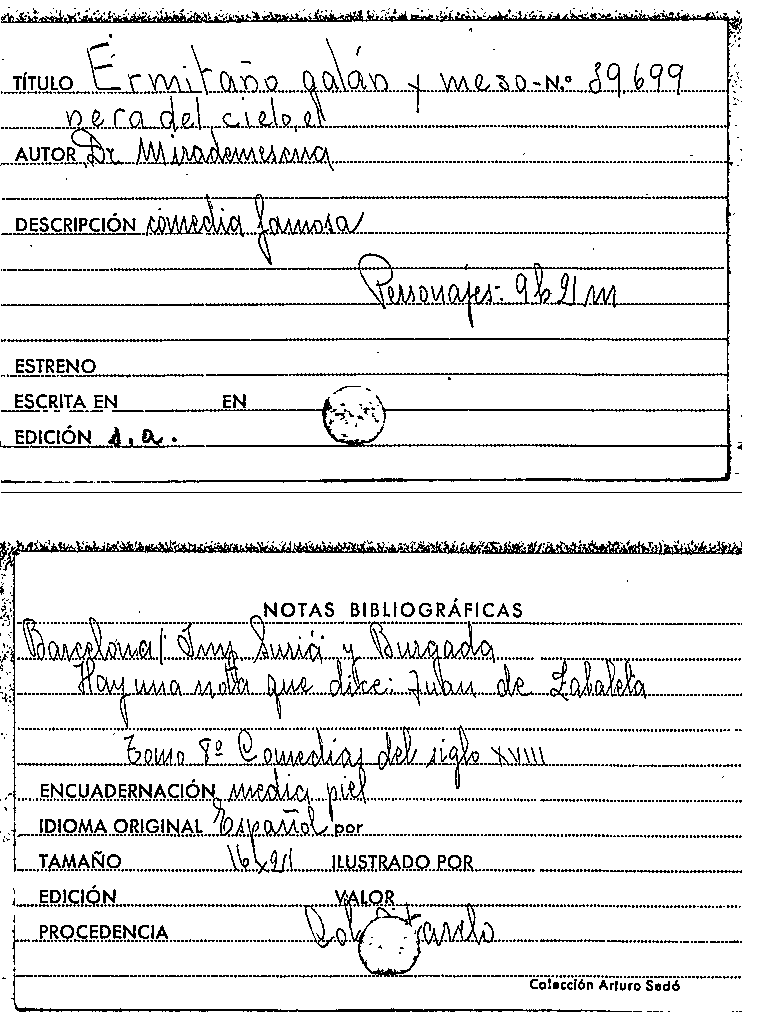 TÍTULO Ermitaño galán y meso- N.º 89.699
nera del cielo, el
AUTOR Dr. Mirademescua
DESCRIPCIÓN comedia famosa
Personajes: 9h 2m
ESTRENO
ESCRITA EN EN
EDICIÓN s.a.
NOTAS BIBLIOGRÁFICAS
Barcelona/ Imp Suriá y Burgada
Hay una nota que dice: Juan de Zabaleta
Tomo 8º Comedias del siglo XVIII
ENCUADERNACIÓN media piel
IDIOMA ORIGINAL Español por
TAMAÑO 16x21 ILUSTRADO POR
EDICIÓN VALOR
PROCEDENCIA
Colección Arturo Sedó